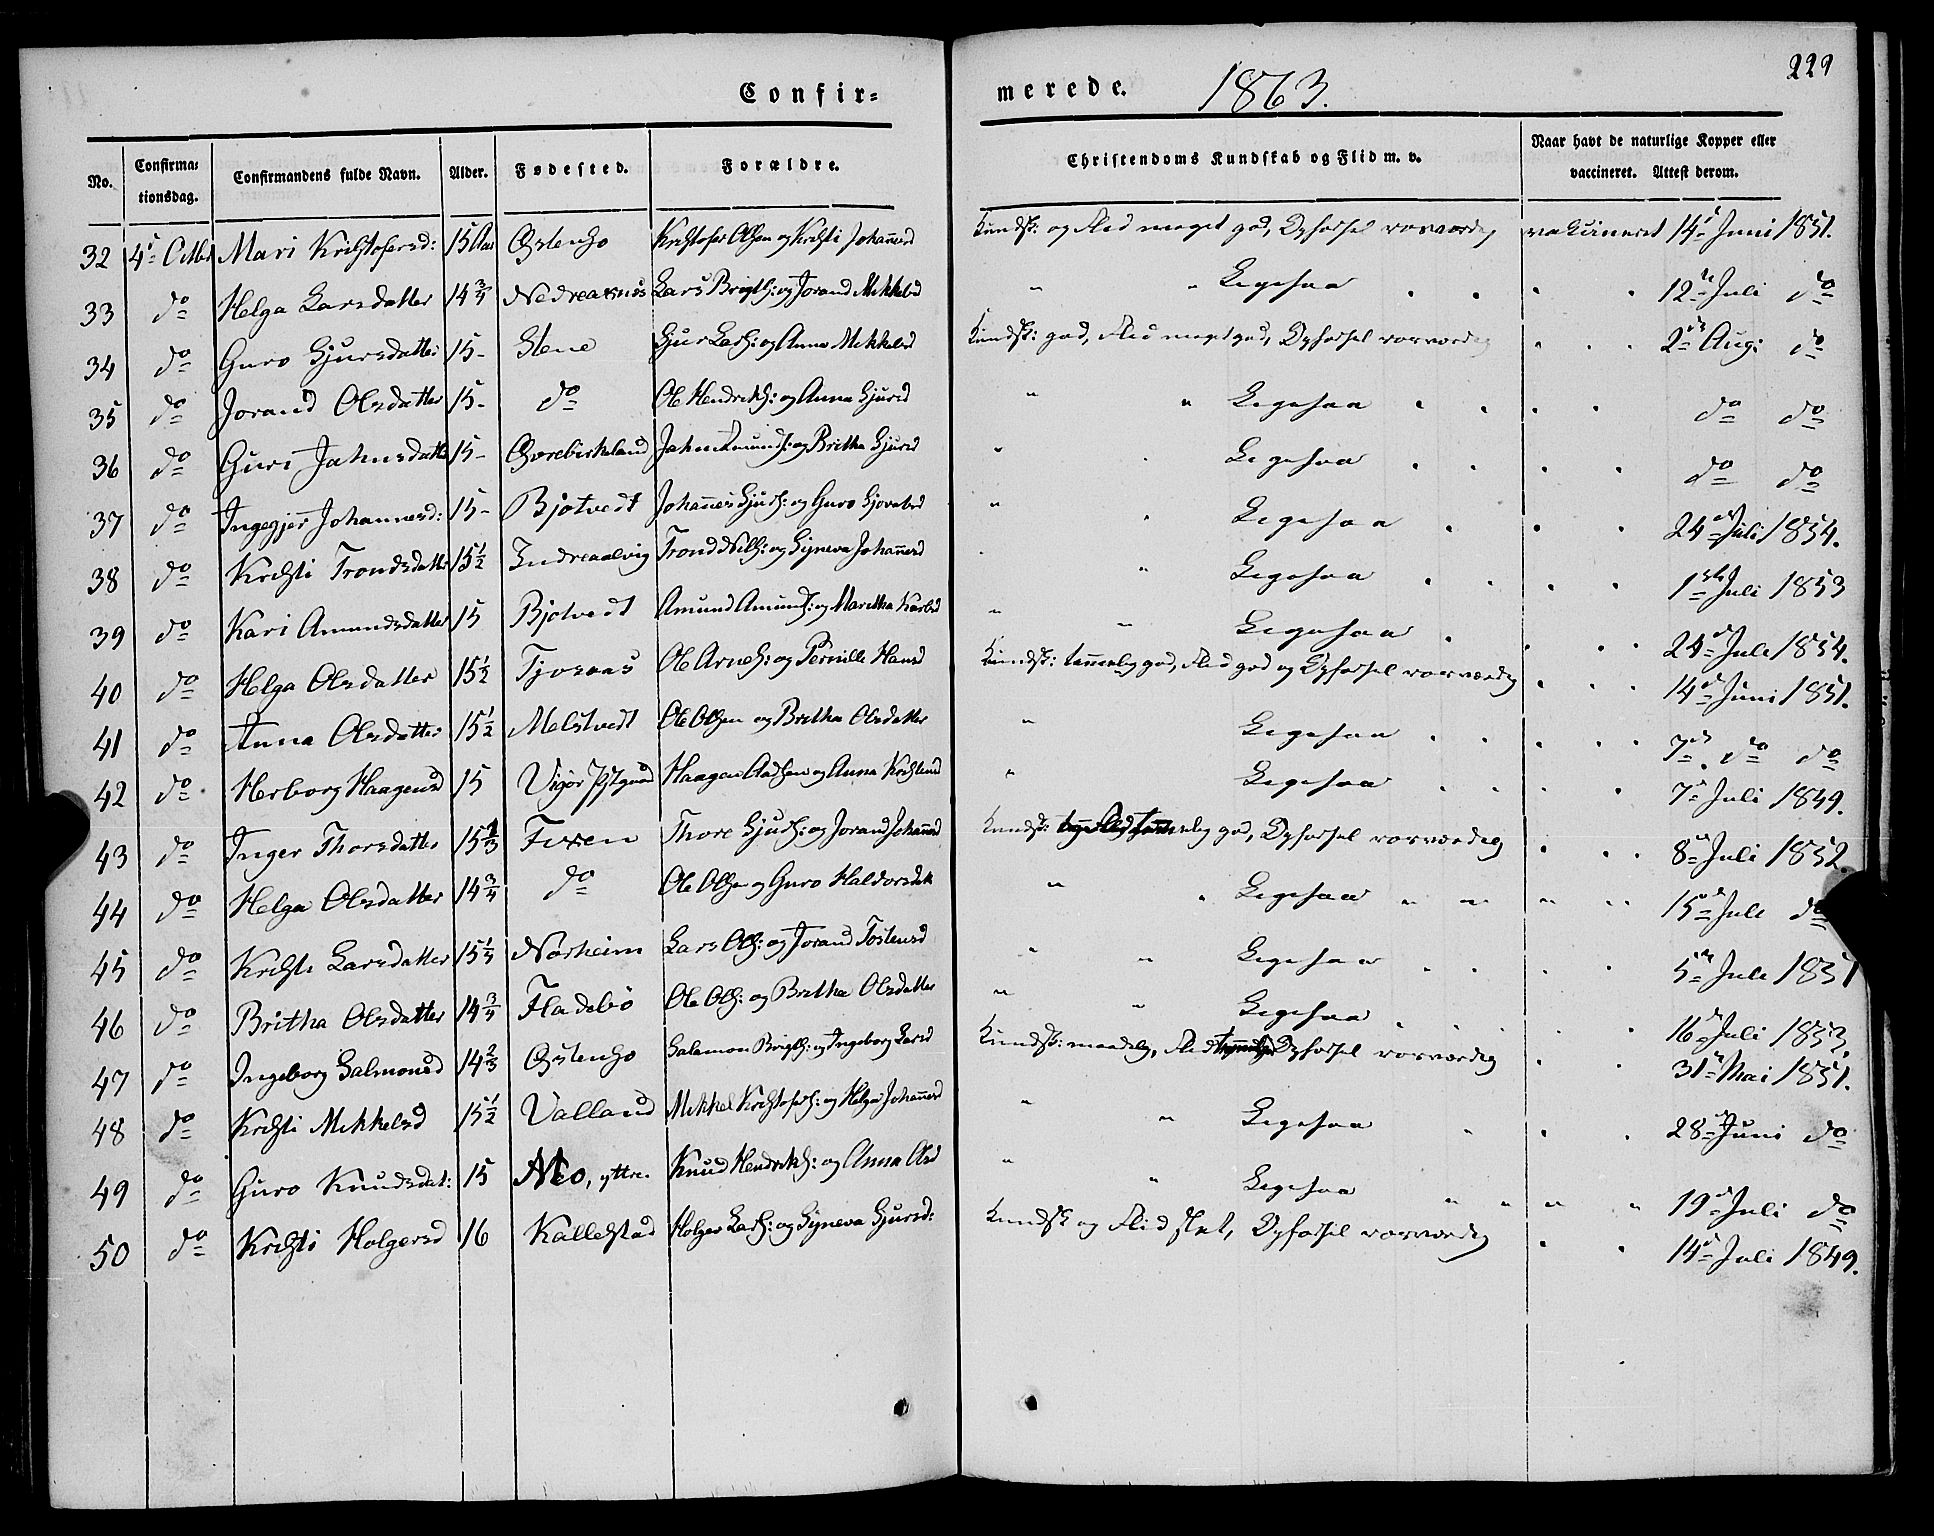 Confir-
merede. 1863.
222
No. Confirmationsdag. Confirmandens fulde Navn. Alder. Fødested. Forældre. Christendoms Kundskab og Flid m. v. Naar havt de naturlige Kopper eller vaccineret. Attest derom.
32 4de Octbr Mari Kristofersd: 15 Aar Østensø Kristofer Olsen og Kristi Johannesd Kundsk: og Flid meget god, Opførsel rosværdig vakcineret 14de Juni 1851.
33 do Helga Larsdatter 14 3/4 Nedreaxnes Lars Brigts: og Jorand Mikkelsd " " Ligesaa 12te Juli do
34 do Guro Sjursdatter 15- Stene Sjur Lars: og Anna Mikkelsd Kundsk: god, Flid meget god, Opførsel rosværdig 2den Aug: do
35 do Jorand Olsdatter 15- do Ole Hendriks: og Anna Sjursd " " Ligesaa do do
36 do Guri Jahnsdatt 15- Øvrebirkeland Jahn Amunds: og Britha Sjursd " Ligesaa do do
37 do Ingegjer Johannesd: 15- Bjotvedt Johannes Sjurs: og Guro Sjovatsd " Ligesaa 24de Juli 1854.
38 do Kristi Trondsdatter 15 1/2 Indreaalvig Trond Nils: og Syneva Johannesd " Ligesaa 1ste Juli 1853
39 do Kari Amundsdatter 15 Bjotvedt Amund Amunds: og Maritha Larsd " " Ligesaa 24de Juli 1854.
40 do Helga Olsdatter 15 1/2 Tjoraas Ole Arnes: og Pernille Hansd Kundsk: temmelig god, Flid god og Opførsel rosværdig 14de Juni 1851.
41 do Anna Olsdatter 15 1/2 Melstvedt Ole Olsen og Britha Olsdatter " Ligesaa 7de do do
42 do Herborg Haagensd 15 Vigør Pstgaard Haagen Aadsen og Anna Kristensd " Ligesaa 7de Juli 1849.
43 do Inger Thorsdatter 15 1/3 Fixen Thore Sjurs: og Jorand Johannesd Kundsk: og Flid temmelig god, Opførsel rosværdig 8de Juli 1852.
44 do Helga Olsdatter 14 3/4 do Ole Olsen og Guro Haldorsdatt " Ligesaa 15de Juli do
45 do Kristi Larsdatter 15 1/4 Norheim Lars Ols: og Jorand Tostensd " " Ligesaa 5te Juli 1851
46 do Britha Olsdatter 14 3/4 Fladebø Ole Ols: og Britha Olsdatter " " Ligesaa 16de Juli 1853
47 do Ingeborg Salmonsd 14 2/3 Østensø Salamon Brigts: og Ingeborg Larsd Kundsk: maadelig, Flid Opførsel rosværdig 31te Mai 1851.
48 do Kristi Mikkelsd 15 1/2 Valland Mikkel Kristofers: og Helga Johannesd " " Ligesaa 28de Juni do
49 do Guro Knudsdat: 15 Mo, yttre. Knud Hendriks: og Anna Olsd " " Ligesaa 19de Juli do
50 do Kristi Holgersd 16 Kallestad Holger Lars: og Syneva Sjursd: Kundsk og Flid slet, Opførsel rosværdig 14de Juli 1849.